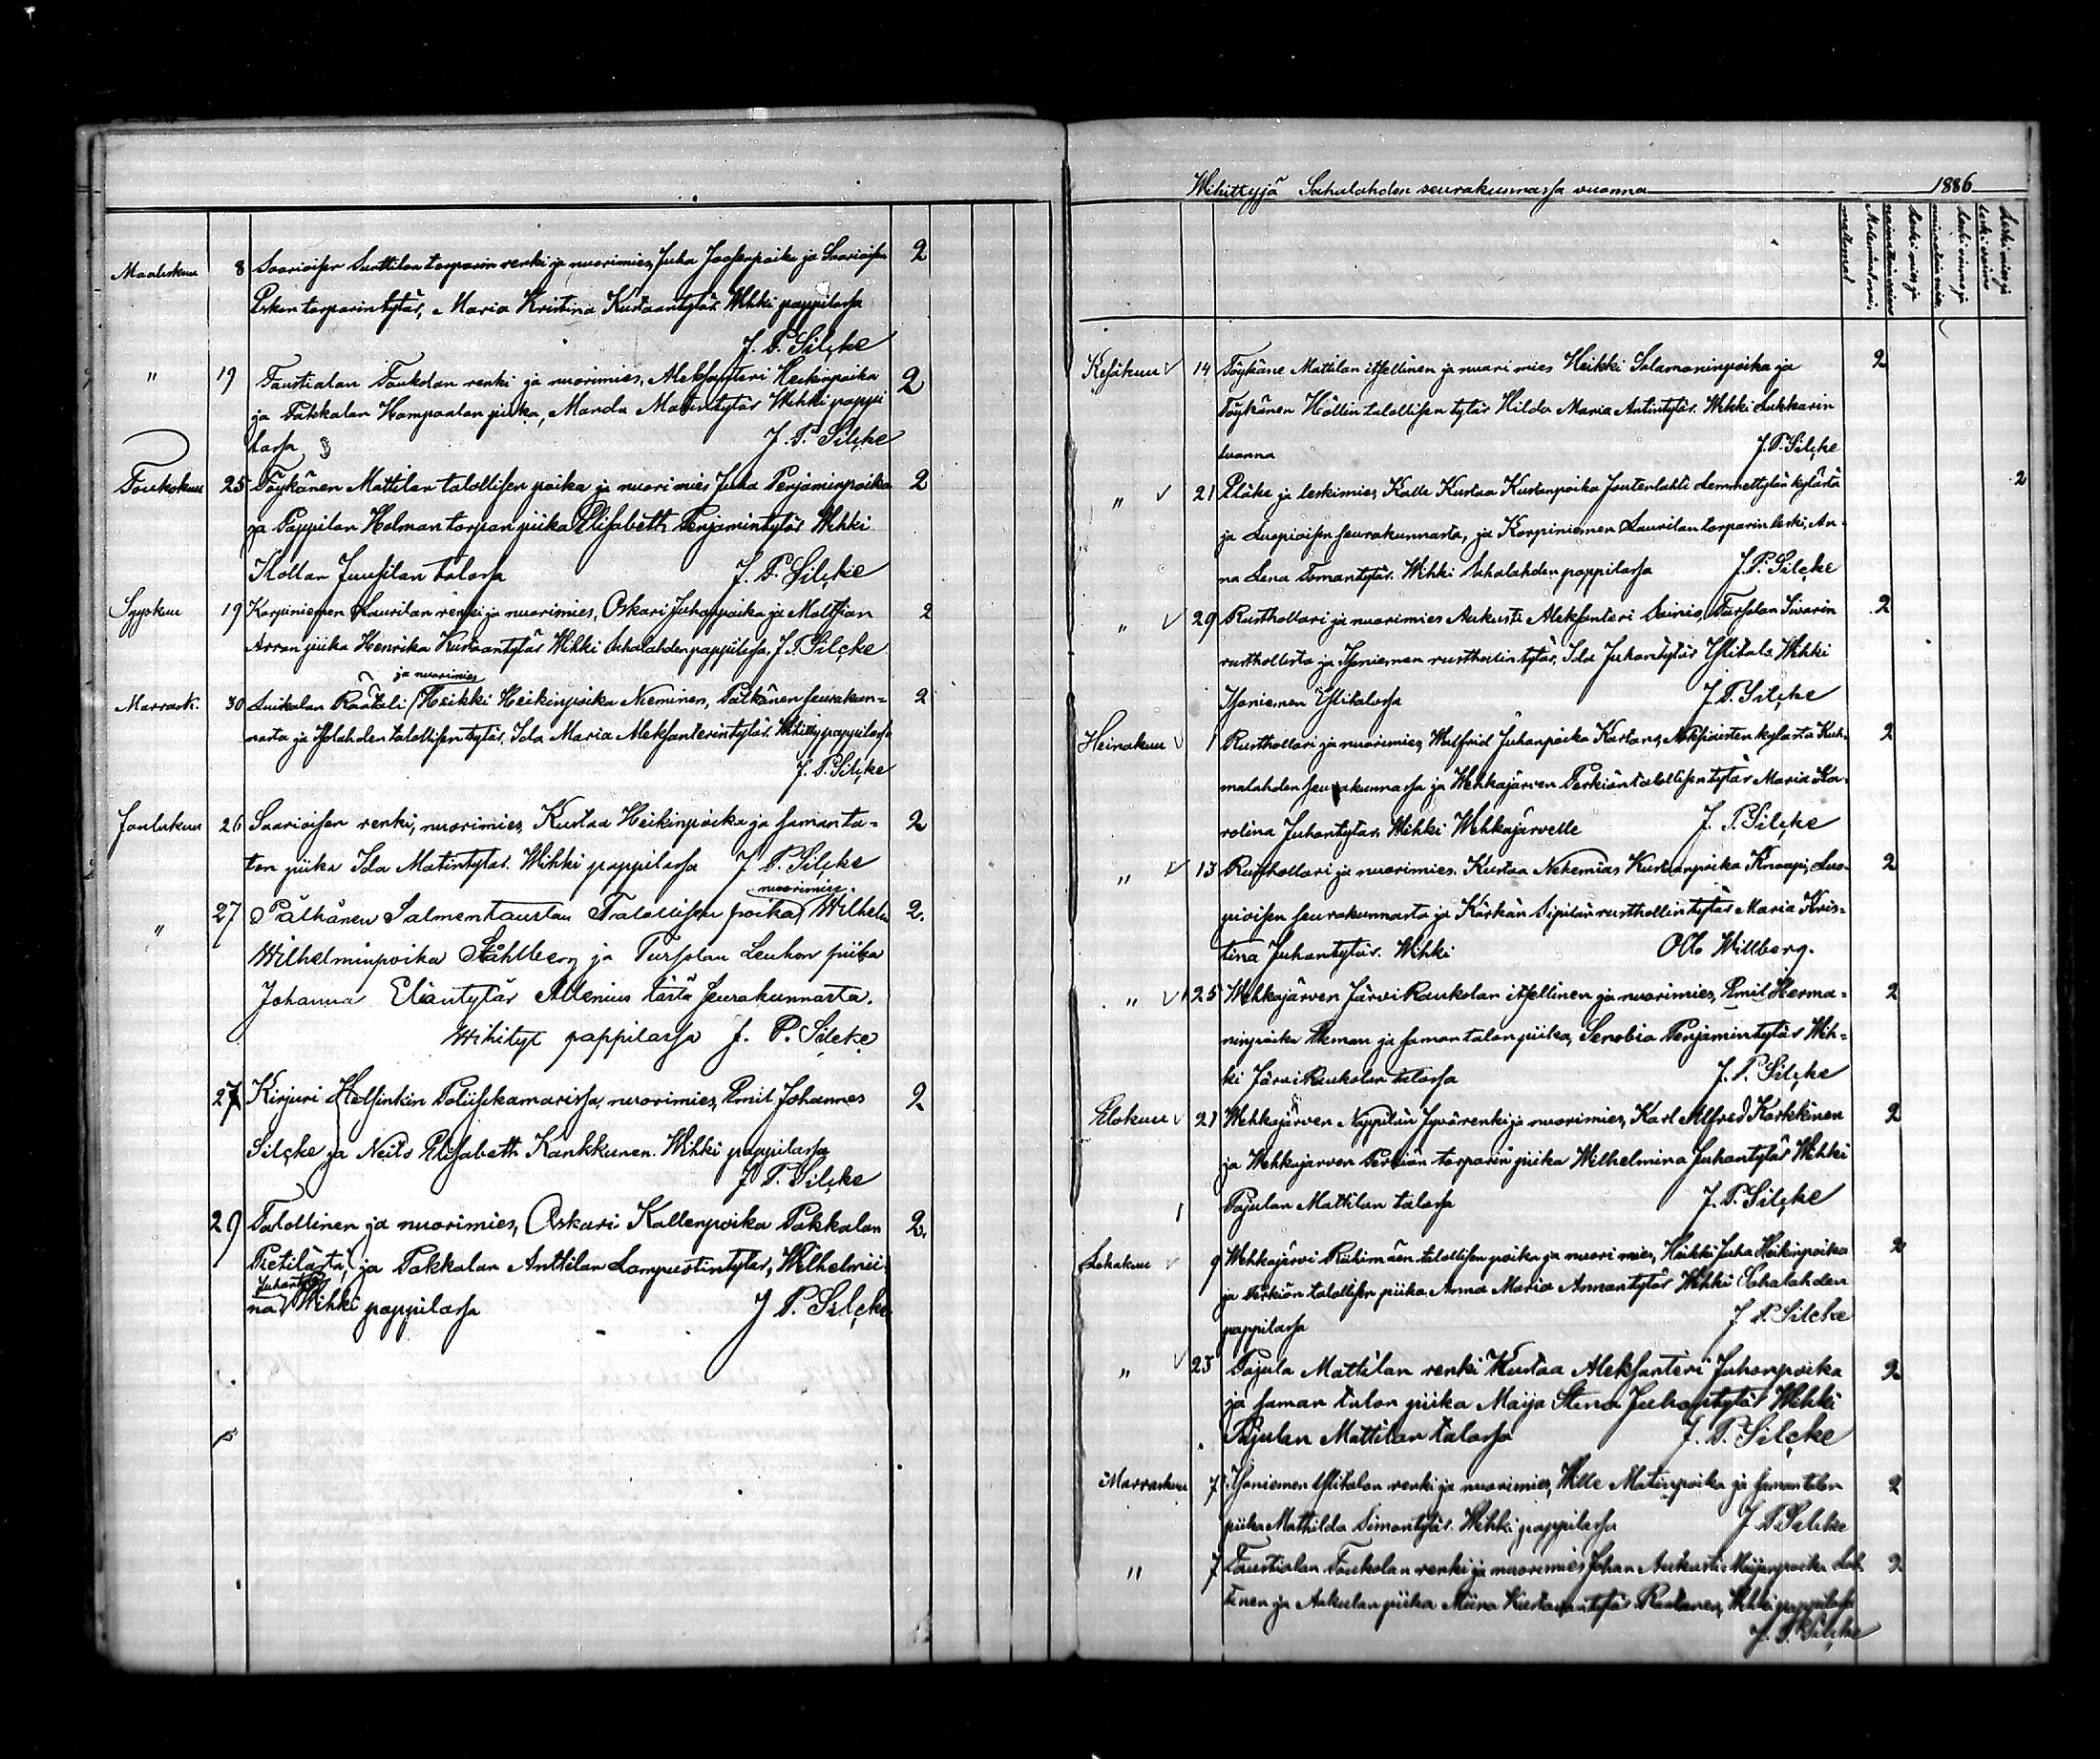 Maaliskuu 8 Saarioisen Anttilan torparin renki ja nuorimies, Juha Joosenpoika ja Saarioisen 2
Eskon torparintytär, Maria Kristina Kustaantytär. Wihki pappilassa
J. P. Silçke
" 19 Taustialan Toukolan renki ja nuorimies, Aleksanteri Heikinpoika 2
ja Pakkalan Hampaalan piika, Manda Matintytär Wihki pappi
lassa J. P. Silçke
Toukokuu 25 Töykänen Mattilan talollisen poika ja nuorimies Juha Penjaminpoika 2
ja Pappilan Holman torpan piika Elisabeth Penjamintytär Wihki
Kollan Juusilan talossa J. P. Silçke
Syyskuu 19 Korpiniemen Laurilan renki ja nuorimies, Oskari Juhanpoika ja Moltsian 2
Arran piika Henrika Kustaantytär Wihki Sahalahden pappilassa, J. P. Silçke
ja nuorimies
Marrask. 30 Luikalan Räätäli Heikki Heikinpoika Nieminen, Pälkänen seurakun- 2
nasta ja Isolahden talollisen tytär, Ida Maria Aleksanterintytär. Wihitty pappilassa
J. P. Silçke
Joulukuu 26 Saarioisen renki, nuorimies, Kustaa Heikinpoika ja saman ta- 2
lon piika Ida Matintytär. Wihki pappilassa J. P. Silçke
nuorimies.
" 27 Pälkänen Salmentaustan Talollisen poika Wilhelm 2.
Wilhelminpoika Ståhlberg ja Tursolan Leuhon piika
Johanna Eliantytär Allenius tästä seurakunnasta.
Wihityt pappilassa J. P. Silcke
27 Kirjuri Helsinkin Poliisikamarissa, nuorimies, Emil Johannes 2
Silçke ja Neito Elisabeth Kankkunen. Wihki pappilassa
J. P. Silçke
29 Talollinen ja nuorimies, Oskari Kallenpoika Pakkalan 2.
Pietilästä, ja Pakkalan Anttilan Lampuotintytär, Wilhelmii-
Juhantytär
na Wihki pappilassa J. P. Silçke
Wihittyjä Sahalahden seurakunnassa vuonna 1886
Molemmat nai-
mattomat
Leski mies ja
Leski vaimo ja
Leski mies ja
leski vaimo
Kesäkuu 14 Töykäne Mattilan itsellinen ja nuori mies Heikki Salamoninpoika ja 2
Töykänen Höllin talollisen tytär Hilda Maria Antintytär. Wihki Lukkarin
luonna J. P. Silçke
" 21 ja leskimies, Kalle Kustaa Kustanpoika Joutenlahti Lemmettylän kylästä 2
ja Luopioisen seurakunnasta, ja Korpiniemen Laurilan torparin leski, An-
na Lena Tomantytär. Wihki Sahalahden pappilassa J. P. Silçke
" 29 Rusthollari ja nuorimies Aukusti Aleksanteri Tursolan Iivarin 2
rusthollista ja Isoniemen rusthollin tytär, Ida Juhantytär Ylitalo. Wihki
Isoniemen Ylitalossa J. P. Silçke
Heinäkuu 1 Rusthollari ja nuorimies, Wilfrid Juhanpoika kylästä Kuh- 2
malahden seurakunnassa ja Wehkajärven Perkiön talollisen tytär Maria Ka-
rolina Juhantytär. Wihki Wehkajärvelle J. P. Silçke
" 13 Rusthollari ja nuorimies. Kustaa Nehemias Kustaanpoika Knaapi, Luo- 2
pioisen seurakunnasta ja Kärkän Sipilän rusthollin tytär Maria Kris-
tina Juhantytär. Wihki Otto Willberg.
" 25 Wehkajärven Järvi Raukolan itsellinen ja nuorimies, Emil Herma- 2
ninpoika Ekman ja saman talon piika, Senobia Penjamintytär Wih-
ki Järvi Raukolan talossa J. P. Silçke
Elokuu 21 Wehkajärven Nappilan Jyvärenki ja nuorimies, Karl Alfred Korkkinen 2
ja Wehkajärven Perkiön torparin piika Wilhelmina Juhantytär Wihki
Pajulan Mattilan talossa J. P. Silçke
Lokakuu 9 Wehkajärvi Riihimäen talollisen poika ja nuori mies, Heikki Juha Heikinpoika 2
ja Perkiön talollisen piika Anna Maria Annantytär Wihki Sahalahden
pappilassa J. P. Silcke
" 23 Pajula Mattilan renki Kustaa Aleksanteri Juhonpoika 2
ja saman talon piika Maija Stina Juhontytär Wihki
Pajulan Mattilan talossa J. P. Silçke
Marraskuu 7 Isoniemen Ylitalon renki ja nuorimies, Wille Matinpoika ja saman talon 2
piika Mathilda Simontytär. Wihki pappilassa J. P. Silcke
" 7 Taustialan Toukolan renki ja nuorimies Johan Aukusti Maijanpoika Lah- 2
tinen ja Aukulan piika Miina Kustaantytär Rantanen, Wihki pappilassa
J. P. Silçke